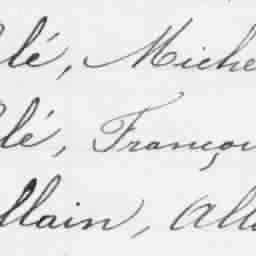 lé, Miche
lé, Françou
llain, All